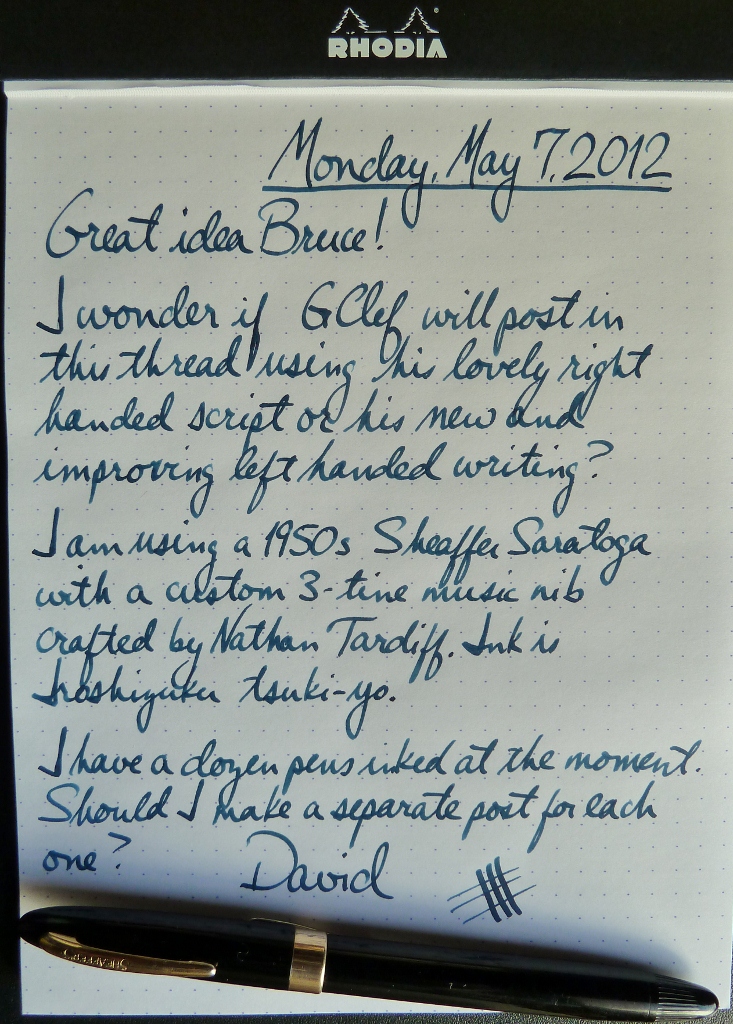 RHODIA
Monday, May 7, 2012
Great idea Bruce!
I wonder if GClef will post in
this thread using his lovely right
handed script or his new and
improving left handed writing?
I am using a 1950s Sheaffer Saratoga
with a custom 3-tine music nib
crafted by Nathan Tardiff. Ink is
Iroshizuku tsuki-yo.
I have a dozen pens inked at the moment.
Should I make a separate post for each
one? David
SHEAFFER'S